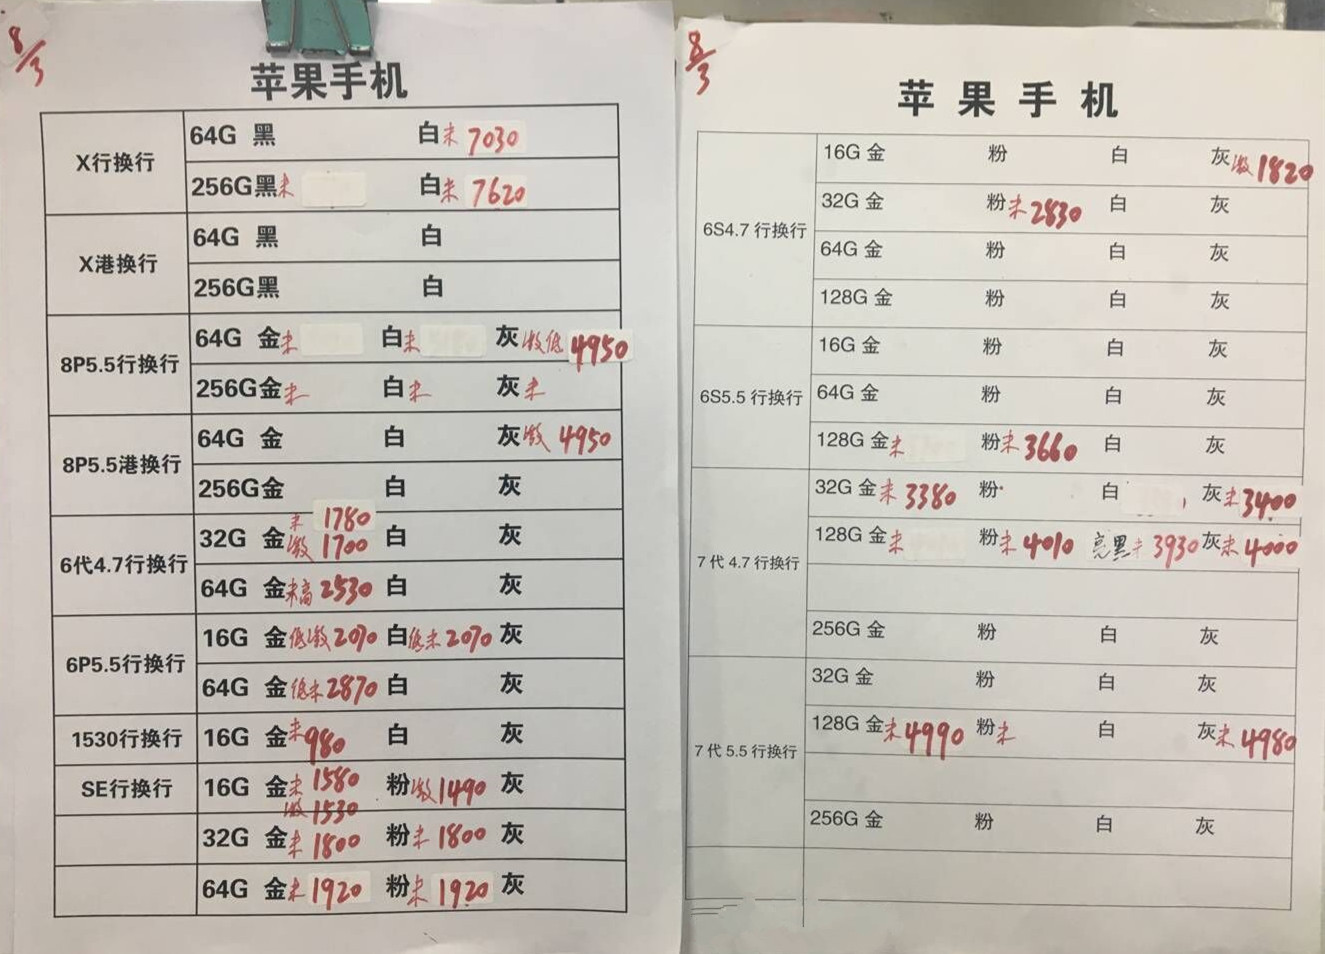 8/3
苹果手机
X行换行 64G 黑 白未 7030
256G黑未 白未 7620
X港换行 64G 黑 白
256G黑 白
8P5.5行换行 64G 金未 白未 灰激低 4950
256G金未 白未 灰未
8P5.5港换行 64G 金 白 灰激 4950
256G金 白 灰
6代4.7行换行 32G 金未 1780 激 1700 白 灰
64G 金未高 2530 白 灰
6P5.5行换行 16G 金低激 2070 白低未 2070 灰
64G 金低未 2870 白 灰
1530行换行 16G 金未 980 白 灰
SE行换行 16G 金未 1580 激 1530 粉激 1490 灰
32G 金未 1800 粉未 1800 灰
64G 金未 1920 粉未 1920 灰
8/3
苹果手机
6S4.7行换行 16G 金 粉 白 灰激 1820
32G 金 粉未 2830 白 灰
64G 金 粉 白 灰
128G 金 粉 白 灰
6S5.5行换行 16G 金 粉 白 灰
64G 金 粉 白 灰
128G 金未 粉未 3660 白 灰
7代4.7行换行 32G 金未 3380 粉 白 灰未 3400
128G 金未 粉未 4010 亮黑未 3930 灰未 4000
256G 金 粉 白 灰
7代5.5行换行 32G 金 粉 白 灰
128G 金未 4990 粉未 白 灰未 4980
256G 金 粉 白 灰